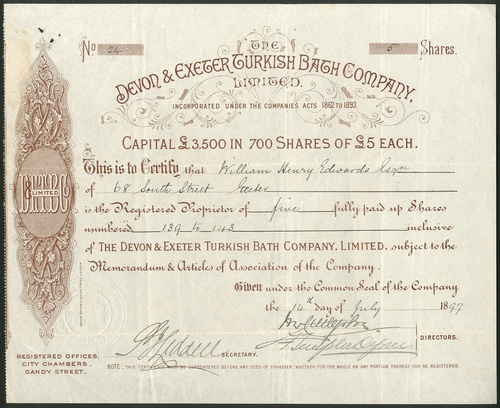 No 24 5 Shares.
THE
DEVON & EXETER TURKISH BATH COMPANY,
LIMITED.
INCORPORATED UNDER THE COMPANIES ACTS 1862 TO 1893.
CAPITAL £3,500 IN 700 SHARES OF £5 EACH.
This is to Certify that William Henry Edwards Esqre
of 68 South Street Exeter
is the Registered Proprietor of five fully paid up Shares
numbered 139 to 143 inclusive
of THE DEVON & EXETER TURKISH BATH COMPANY, LIMITED. subject to the
Memorandum & Articles of Association of the Company.
Given under the Common Seal of the Company
the 14th day of July 1897
SECRETARY.
DIRECTORS.
LIMITED
REGISTERED OFFICES,
CITY CHAMBERS,
GANDY STREET.
NOTE, THIS CERTIFICATE MUST BE SURRENDERED BEFORE ANY DEED OF TRANSFER, WHETHER FOR THE WHOLE OR ANY PORTION THEREOF CAN BE REGISTERED.